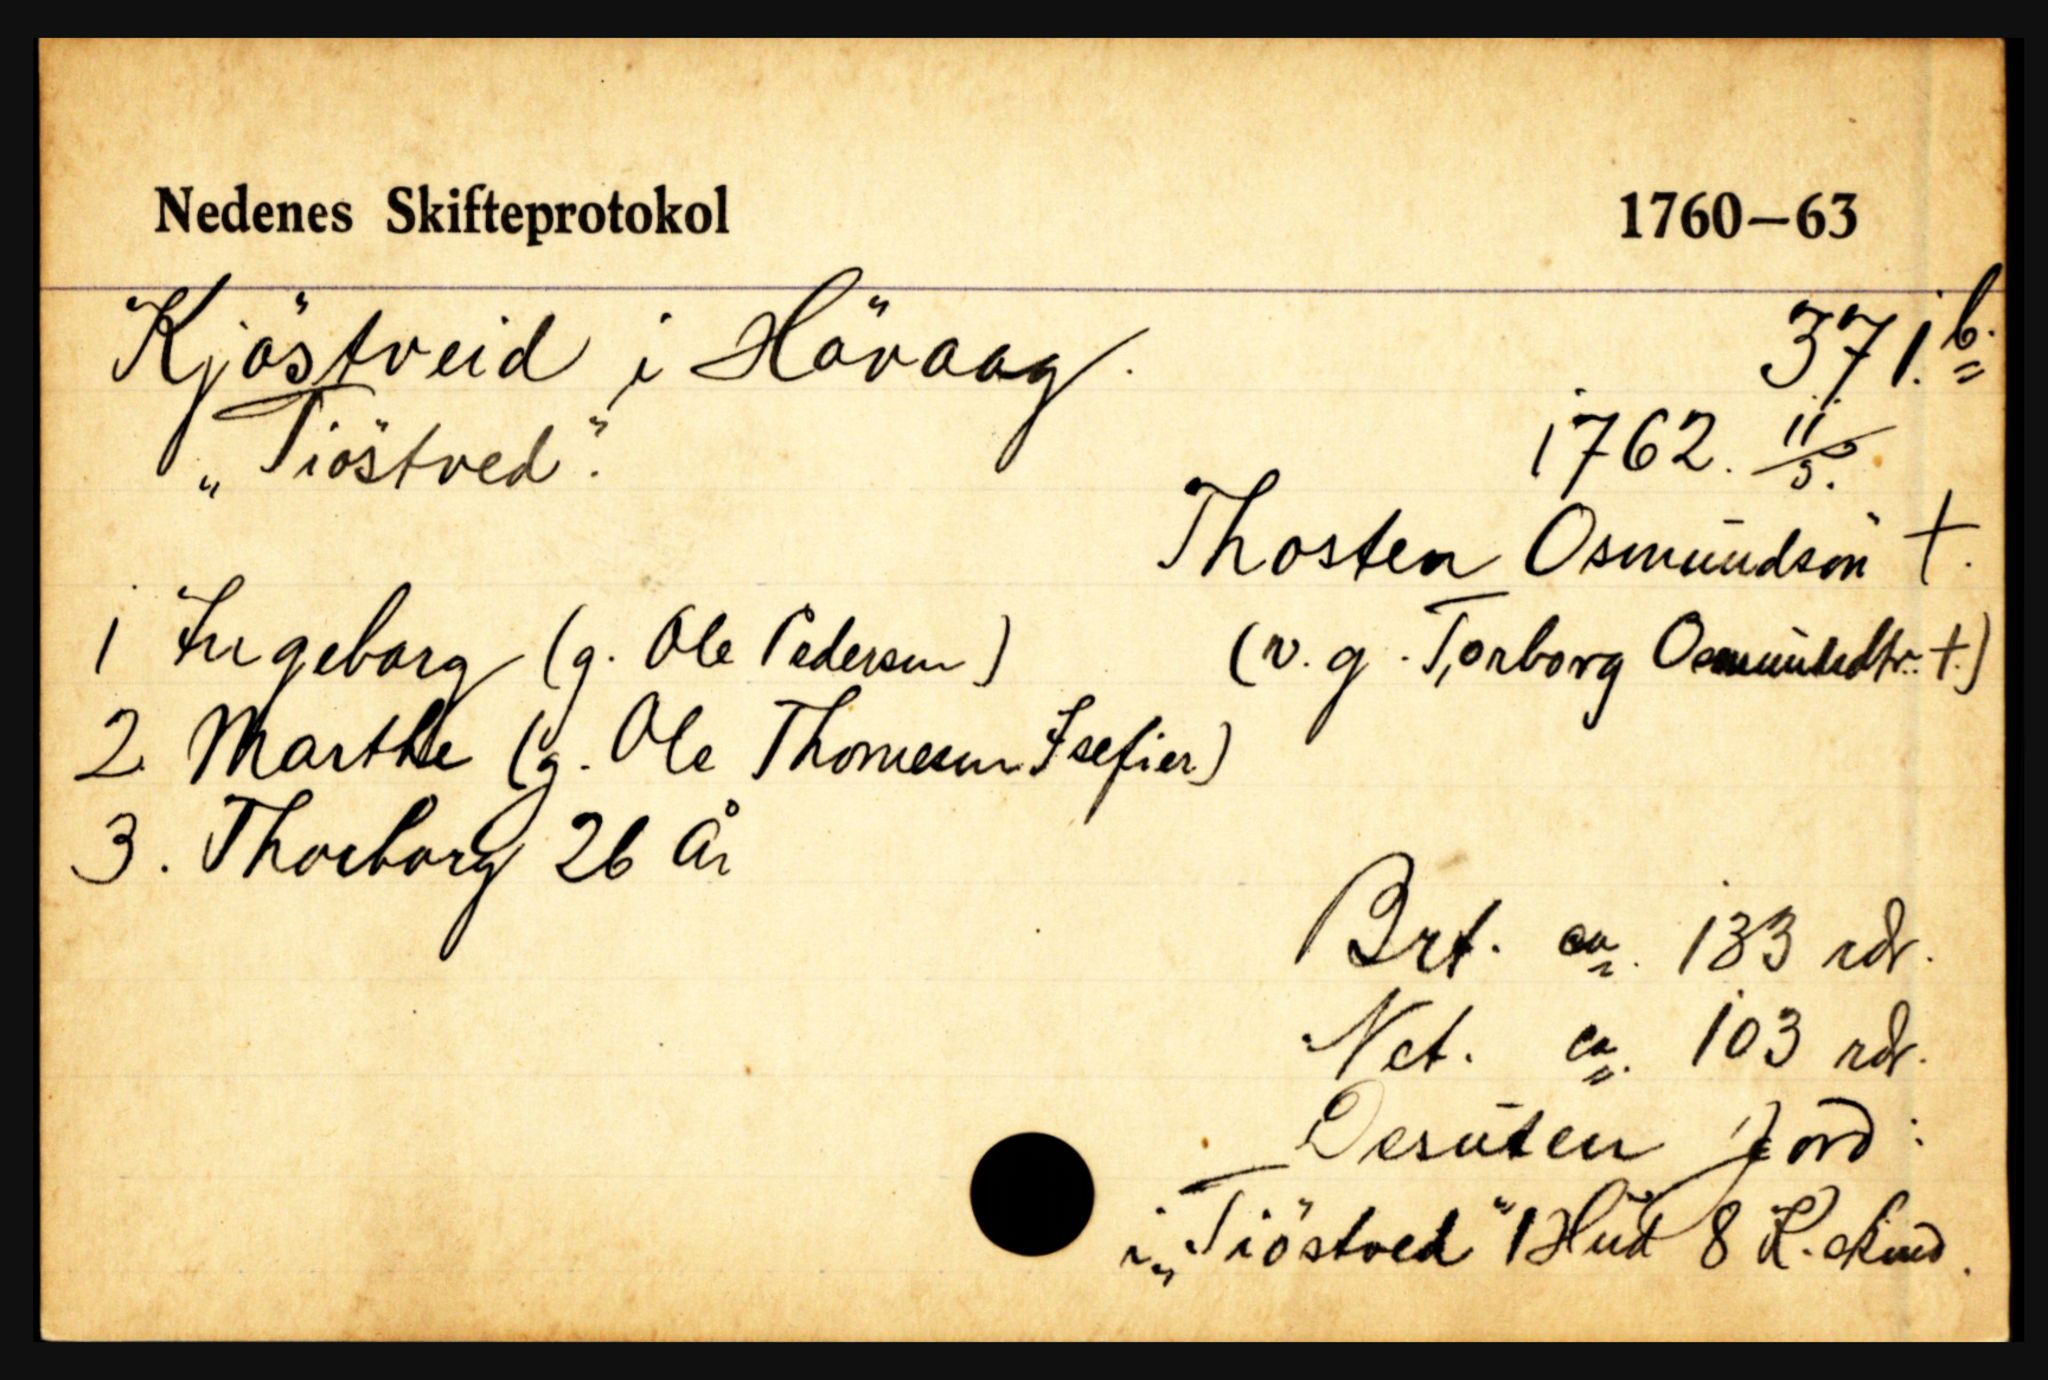 Nedenes Skifteprotokol 1760–63
Kjöstveid i Hövaag. 371.b.
„Tiöstved". 1762. 11/5.
Thosten Osmundsön †.
1 Ingeborg (g. Ole Pedersen) (v. g. Torborg Osmundsdtr. †.)
2. Marthe (g. Ole Thomesen Isefier)
3. Thorborg 26 år
Brt. ca. 133 rdr.
Net. ca. 103 rdr.
Desuten jord:
i „Tiöstved" 1 Hud 8 K.skind.